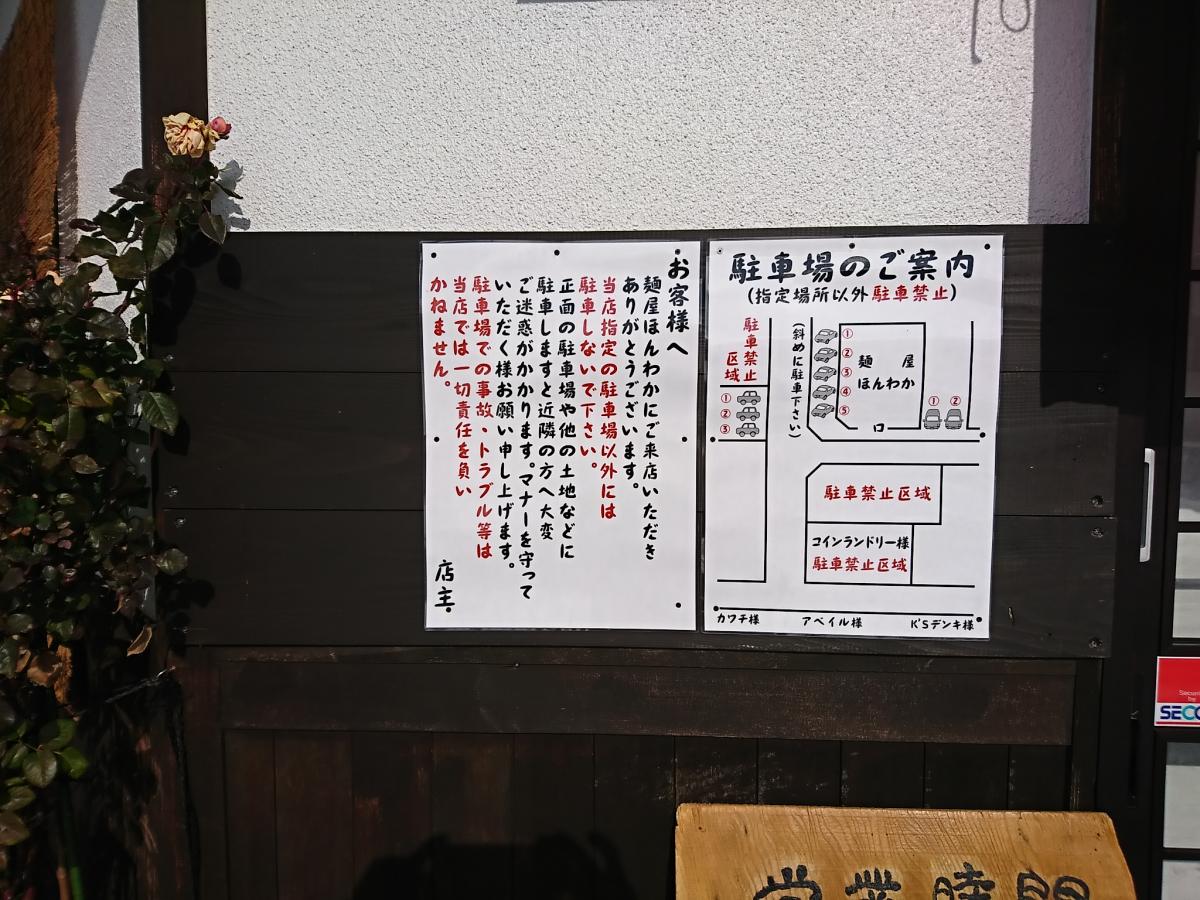 お客様へ
麺屋ほんわかにご来店いただき
ありがとうございます。
当店指定の駐車場以外には
駐車しないで下さい。
正面の駐車場や他の土地などに
駐車しますと近隣の方へ大変
ご迷惑がかかります。マナーを守って
いただく様お願い申し上げます。
駐車場での事故、トラブル等は
当店では一切責任を負い
かねません。
店主
駐車場のご案内
(指定場所以外駐車禁止)
駐車禁止
区域
①
②
③
(斜めに駐車下さい)
①
②
③
④
⑤
麺屋
ほんわか
口
① ②
駐車禁止区域
コインランドリー様
駐車禁止区域
カワチ様
アベイル様
K'Sデンキ様
Secu
by
SECO
営業時間